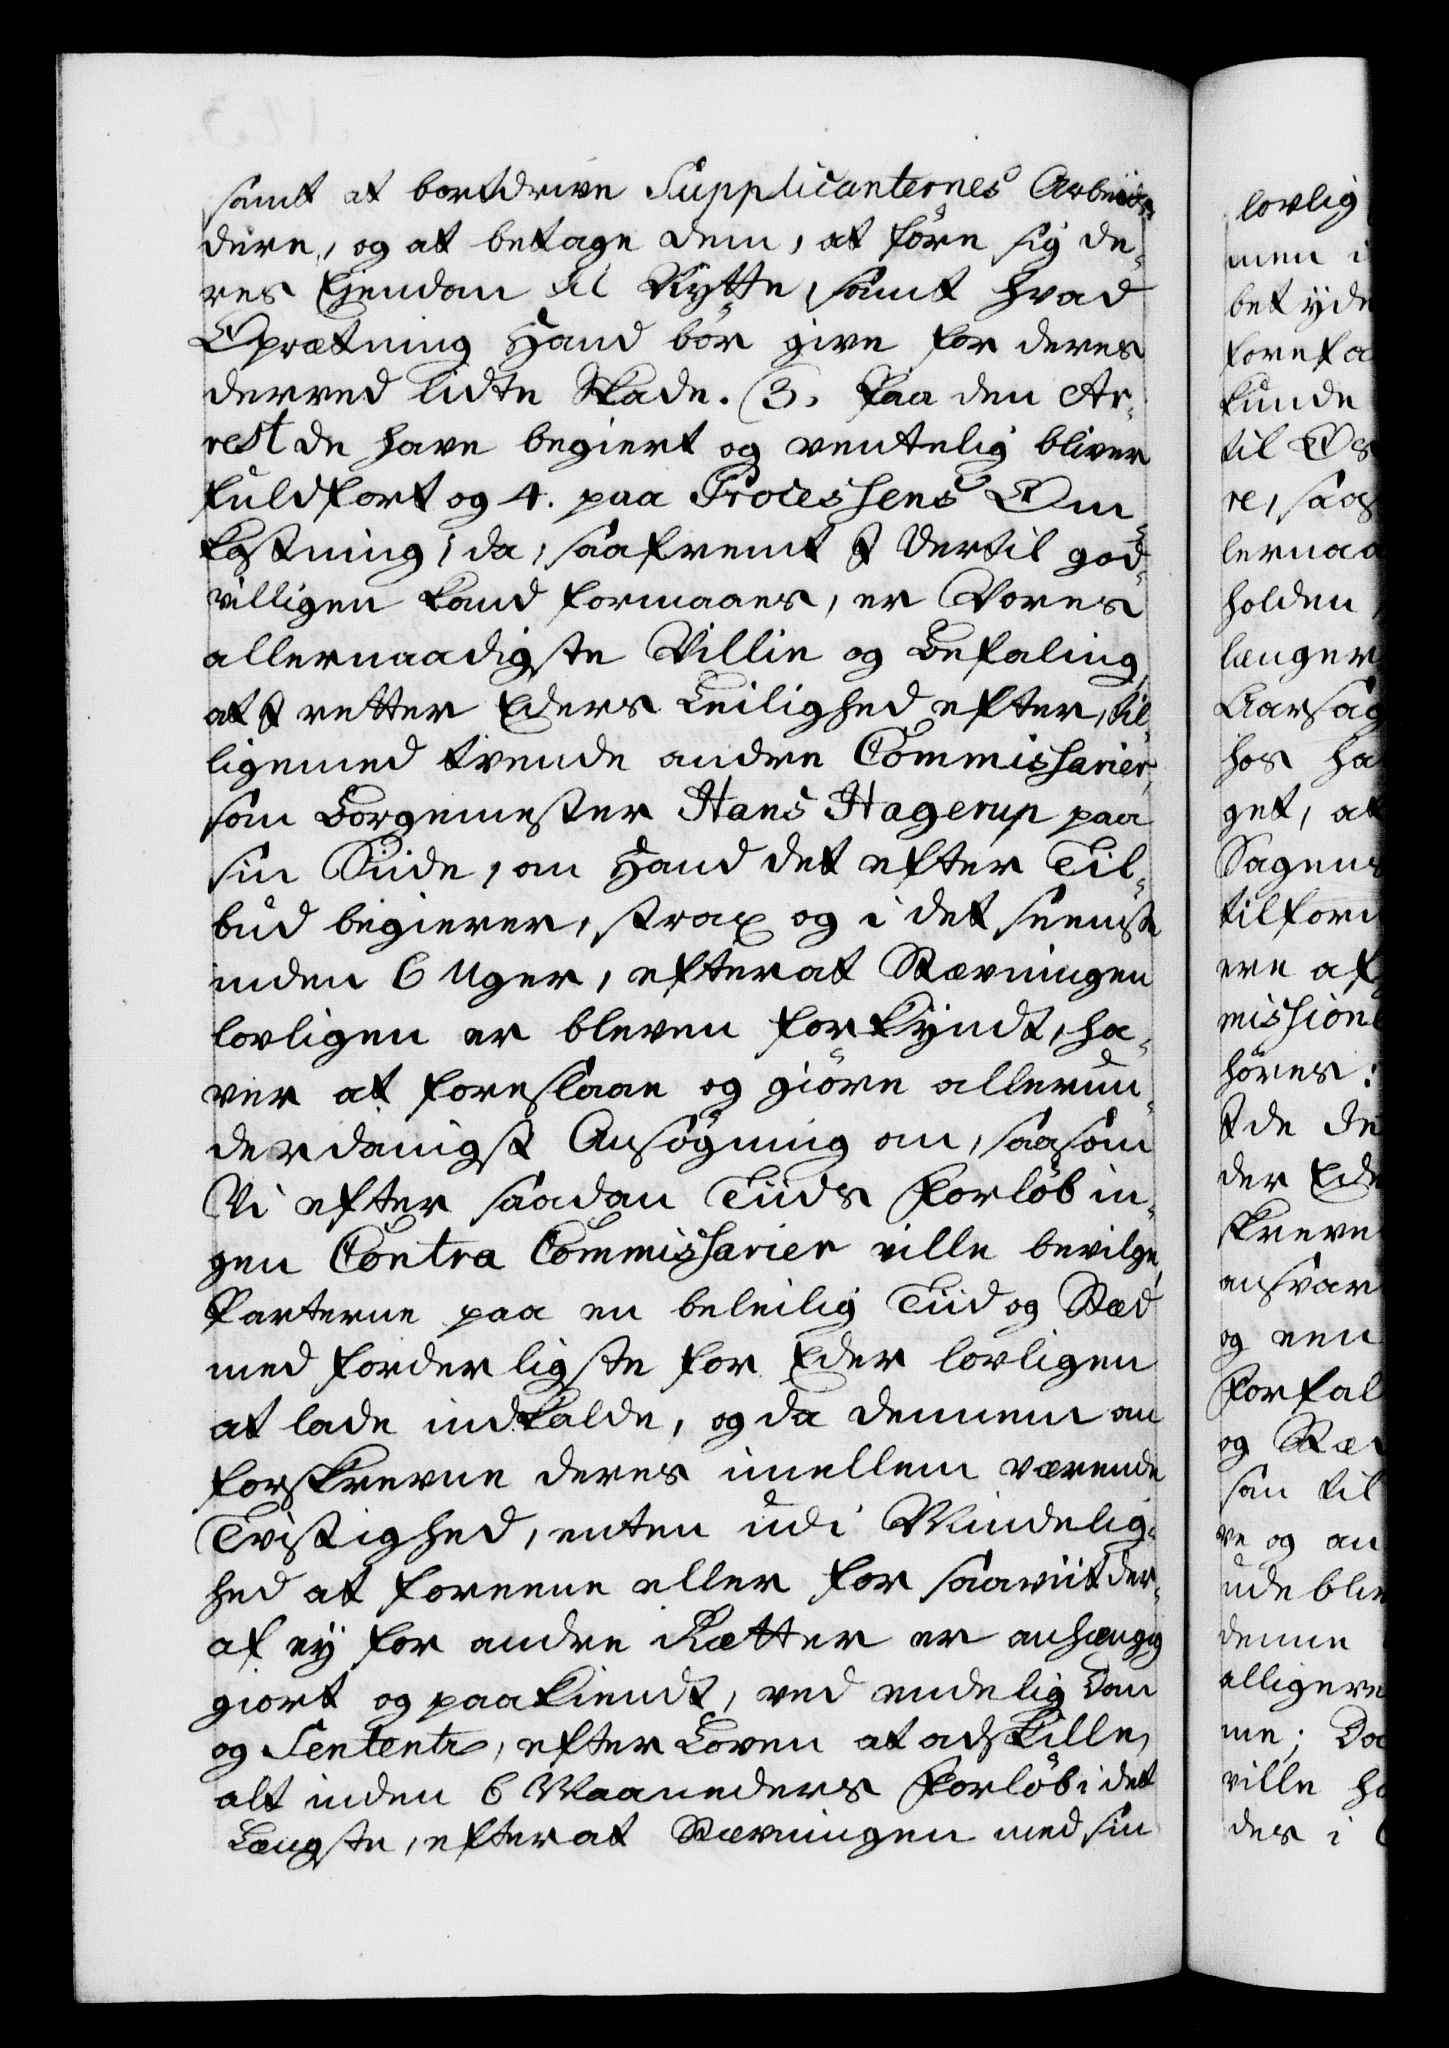 samt at bortdrive Supplicanternes Arbeid¬
dere, og at betage dem, at före sig de¬
res Ejendom til Nytte, samt hvad
Oprætning Hand bör give for deres
derved lidte Skade. 3. Paa den Ar¬
rest de have begiert og ventelig bliver
fuldfört og 4. paa Processens Om¬
kostning; da, saafremt I dertil god¬
villigen kand formaaes, er Vores
allernaadigste Villie og Befaling,
at I retter Eders Leilighed efter, til¬
ligemed tvende andre Commissarier,
som Borgemester Hans Hagerup paa
sin Siide, om Hand det efter Til¬
bud begierer, strax og i det seeniste
inden 6 Uger, efterat Stævningen
lovligen er bleven forkyndt, ha¬
ver at foreslaae og giöre allerun¬
derdanigst Ansögning om, saasom
Vi efter saadan Tiids Forlöb in¬
gen Contra Commissarier ville bevilge,
Parterne paa en beleilig Tiid og Stæd
med forderligste for Eder lovligen
at lade indkalde, og da dennem om
forskrevne deres imellem værende
Tvistighed, enten udi Mindelig¬
hed at foreene eller for saaviit der¬
af ey for andre Rætter er anhængig
giort og paakiendt, ved endelig Dom
og Sententz, efter Loven at adskille,
alt inden 6 Maaneders Forlöb i det
Længste, efterat Stævningen med sin
lovlig
men i
bet yde
forefa
kunde
til Os
re, saa
lernaa
holden
længer
Aarsag
hos ha
get, at
Sagens
tilforn
ere af
mission
höres:
I de de
der Ede
skreve
ansvar
og een
Forfal
og Stæ
som til
ve og an
ude bliv
denne
alligeve
me; Do
ville ha
des i